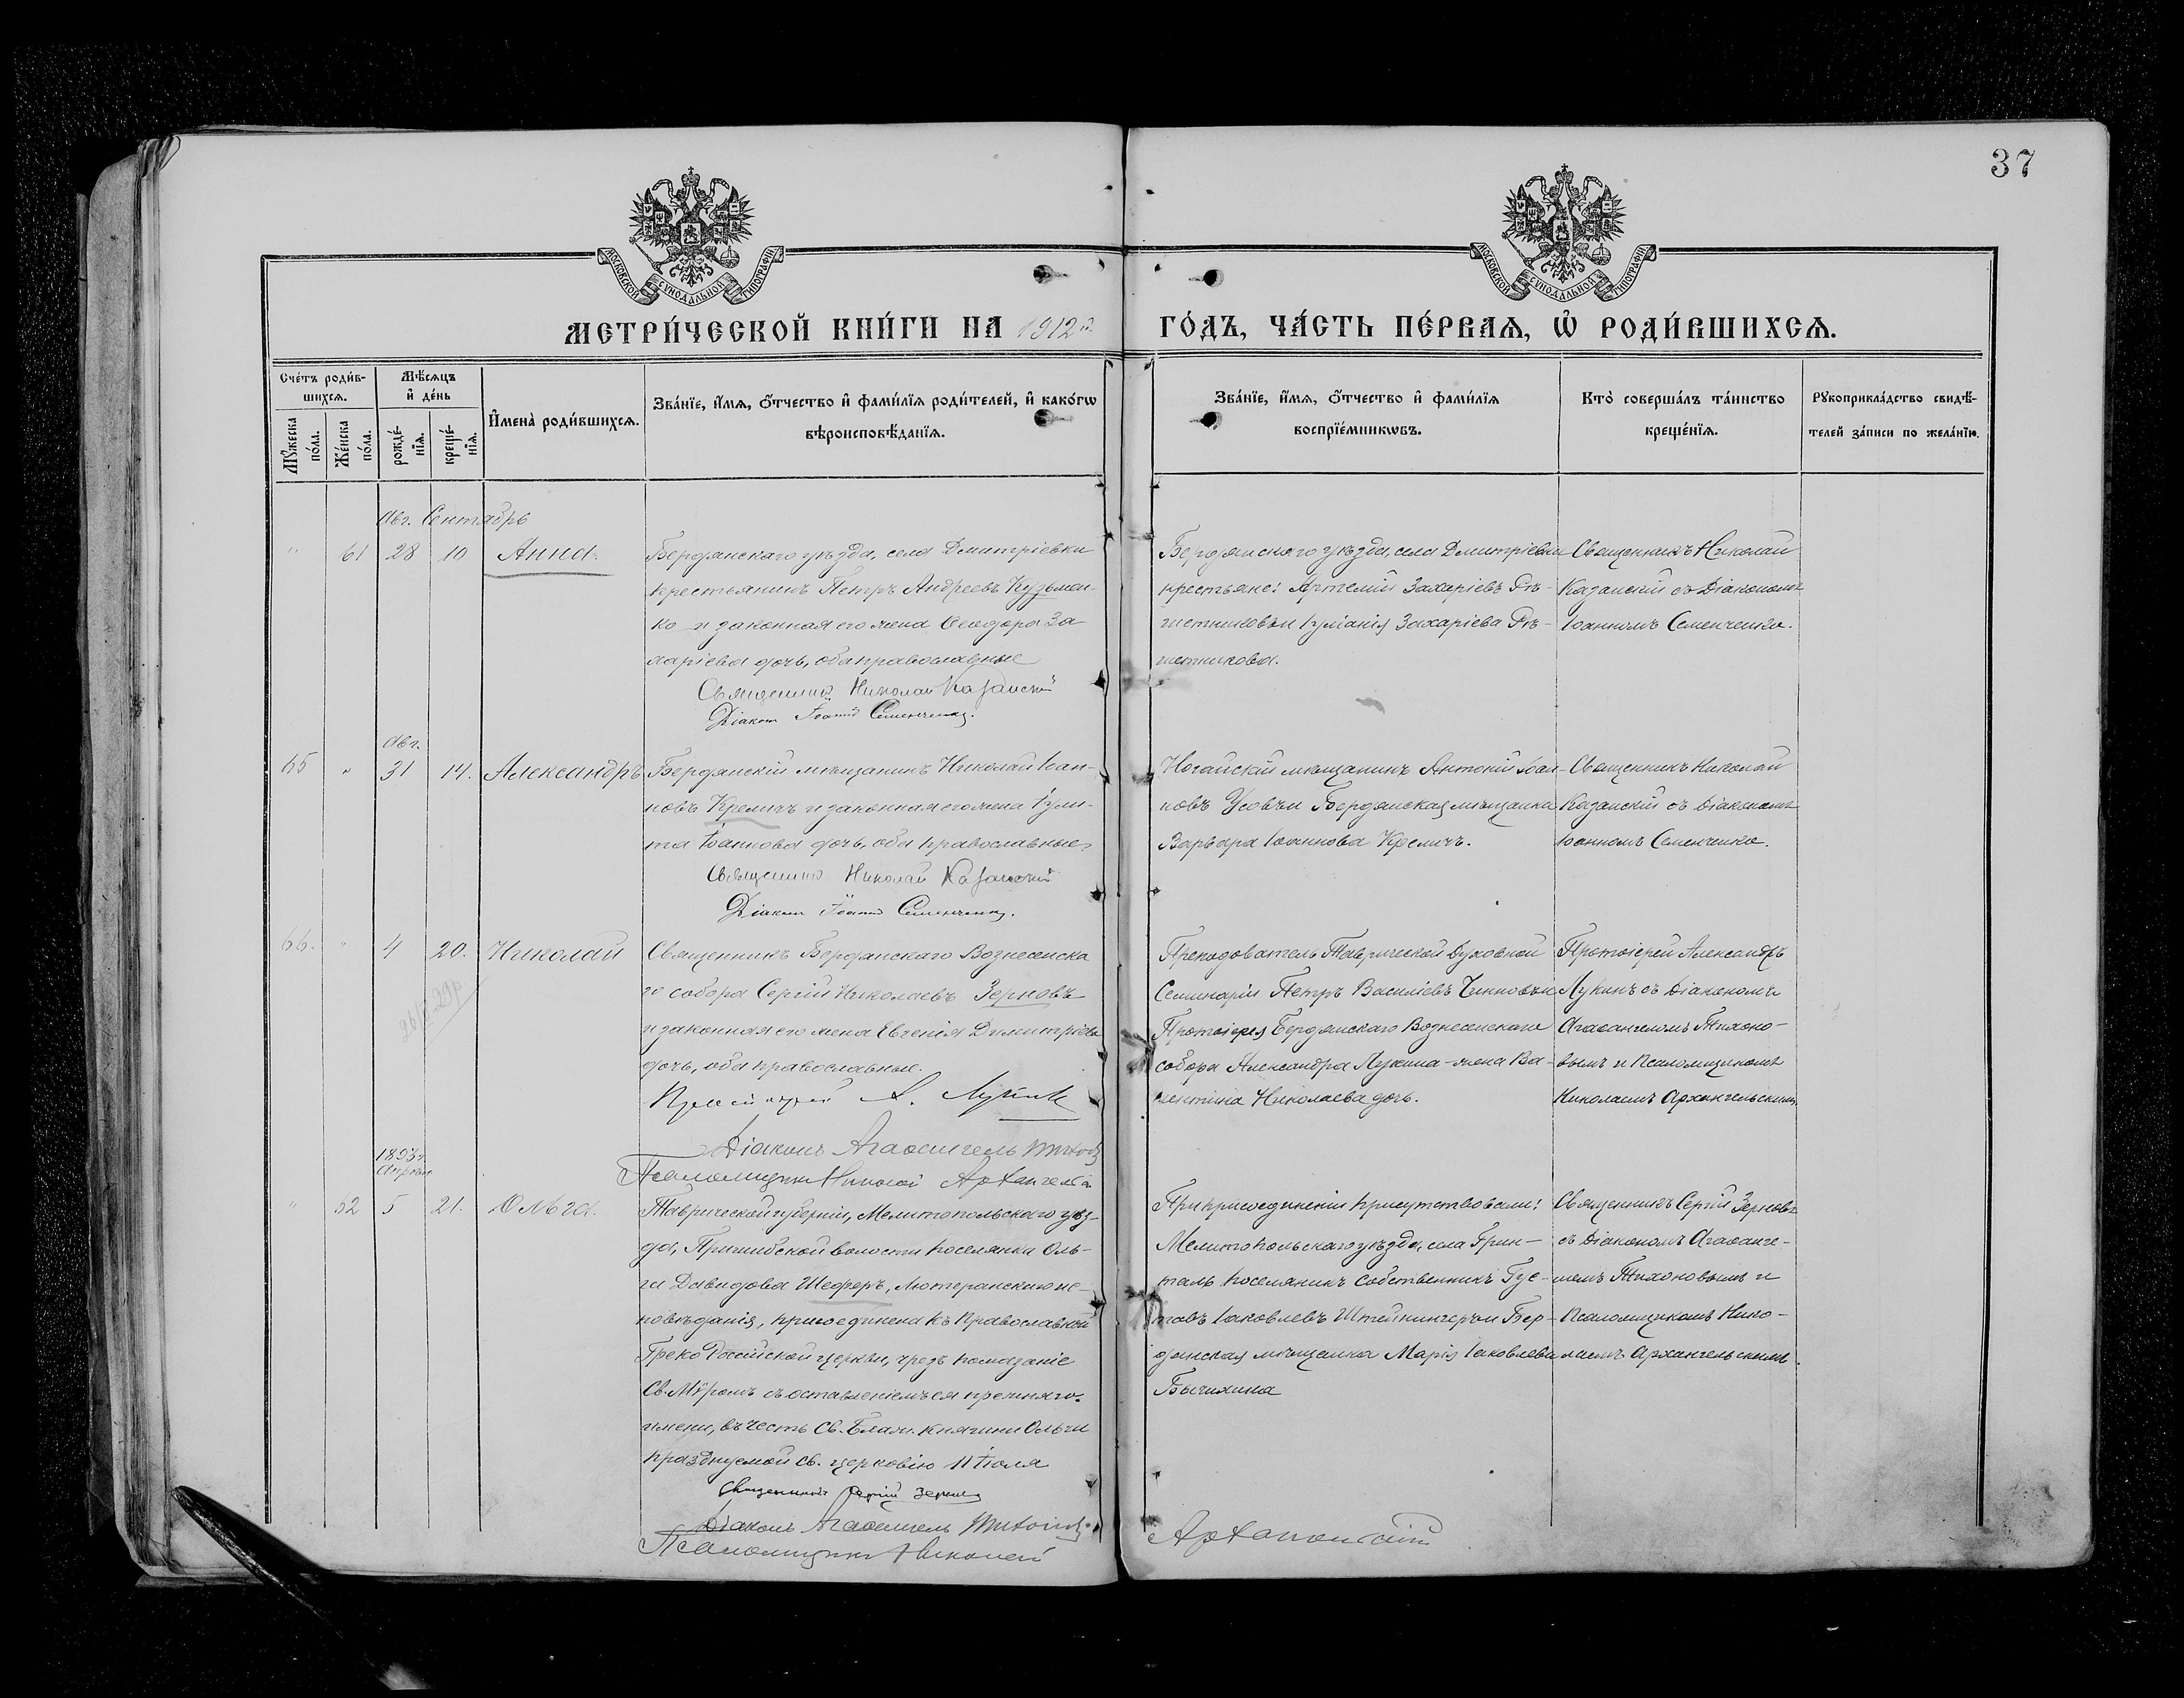 37
МОСКОВСКОЙ СѴНОДАЛЬНОЙ ТИПОГРАФІИ
МОСКОВСКОЙ СѴНОДАЛЬНОЙ ТИПОГРАФІИ
МЕТРИ́ЧЕСКОЙ КНИ́ГИ НА 1912й ГО́ДЪ, ЧА́СТЬ ПЕ́РВАЯ, Ѿ РОДИ́ВШИХСЯ.
Сче́тъ роди́в-
шихся.
Мѣ́сяцъ
и де́нь
Мꙋ́жеска по́ла.
Же́нска по́ла.
рожде́-
нїя.
креще́-
нїя.
И҆мена̀ роди́вшихся.
Зва́нїе, и҆́мя, ѻ҆́тчество и҆ фами́лїя роди́телей, и҆ како́гѡ
вѣроисповѣ́данїя.
Зва́нїе, и҆́мя, ѻ҆́тчество и҆ фами́лїя
воспрїе́мникѡвъ.
Кто̀ соверша́лъ та́инство
креще́нїя.
Рꙋкоприкла́дство свидѣ́-
телей за́писи по жела́нїю.
Авг. Сентябрь
" 61 28 10 Анна.
Бердянскаго уѣзда, села Дмитріевки
крестьянинъ Петръ Андреевъ Кузьмен-
ко и законная его жена Ѳеодора За
харіева дочь, оба православные
Священникъ Николай Казанскій
Діаконъ Іоаннъ Семенченко.
Бердянскаго уѣзда, села Дмитріевки
крестьяне: Артемій Захаріевъ Рѣ-
шетниковъ и Іуліанія Захаріева Рѣ-
шетникова.
Священникъ Николай
Казанскій съ Діакономъ
Іоанномъ Семенченко.
Авг.
65 " 31 14. Александръ
Бердянскій мѣщанинъ Николай Іоан-
новъ Кремичъ и законная его жена Іули-
та Іоаннова дочь, оба православные,
Священникъ Николай Казанскій
Діаконъ Іоаннъ Семенченко.
Ногайскій мѣщанинъ Антоній Іоан-
новъ Усовъ и Бердянская мѣщанка
Варвара Іоаннова Кремичъ.
Священникъ Николай
Казанскій съ Діакономъ
Іоанномъ Семенченко.
66. " 4 20. Николай
Священникъ Бердянскаго Вознесенска
го собора Сергій Николаевъ Зерновъ
и законная его жена Евгенія Димитріева
дочь, оба православные.
Протоіерей А. Лукинъ
Діаконъ Агаѳангелъ Тихоновъ
Псаломщикъ Николай Архангельскій
Преподаватель Таврической Духовной
Семинаріи Петръ Василіевъ и
Протоіерея Бердянскаго Вознесенскаго
собора Александра Лукина - жена Ва-
лентина Николаева дочь.
Протоіерей Александръ
Лукинъ съ Діакономъ
Агаѳангеломъ Тихоно-
вымъ и Псаломщикомъ
Николаемъ Архангельскимъ
Апрѣля
" 62 5 21. Ольга.
Таврической губерніи, Мелитопольскаго уѣз-
да, Пришибской волости поселянка Оль-
га Давидова Шеферъ, Лютеранскаго ис-
повѣданія, присоединена къ Православной
Греко Россійской церкви, чрезъ помазаніе
Св. Мѵромъ съ оставленіемъ ея прежняго
имени, въ честь Св. Благ. княгини Ольги
празднуемой св. церковію 11 Іюля
Священникъ Сергій Зерновъ
Діаконъ Агаѳангелъ Тихоновъ
Псаломщикъ Николай Архангельскій
При присоединеніи присутствовали:
Мелитопольскаго уѣзда, села Грин-
таль поселянинъ собственникъ Гус-
тавъ Іаковлевъ Штейнингеръ и Бер-
дянская мѣщанка Марія Іаковлева
Бычихина
Священникъ Сергій Зерновъ
съ Діакономъ Агаѳанге-
ломъ Тихоновымъ и
Псаломщикомъ Нико-
лаемъ Архангельскимъ.